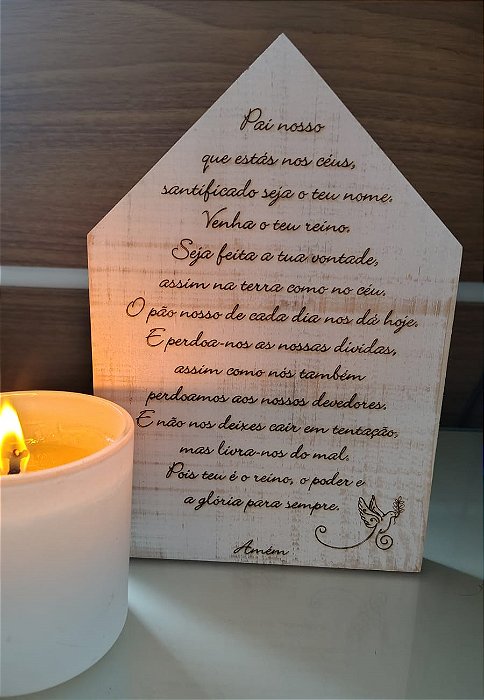 Pai nosso
que estás nos céus,
santificado seja o teu nome.
Venha o teu reino.
Seja feita a tua vontade,
assim na terra como no céu.
O pão nosso de cada dia nos dá hoje.
E perdoa-nos as nossas dívidas,
assim como nós também
perdoamos aos nossos devedores.
E não nos deixes cair em tentação,
mas livra-nos do mal.
Pois teu é o reino, o poder e
a glória para sempre.
Amém